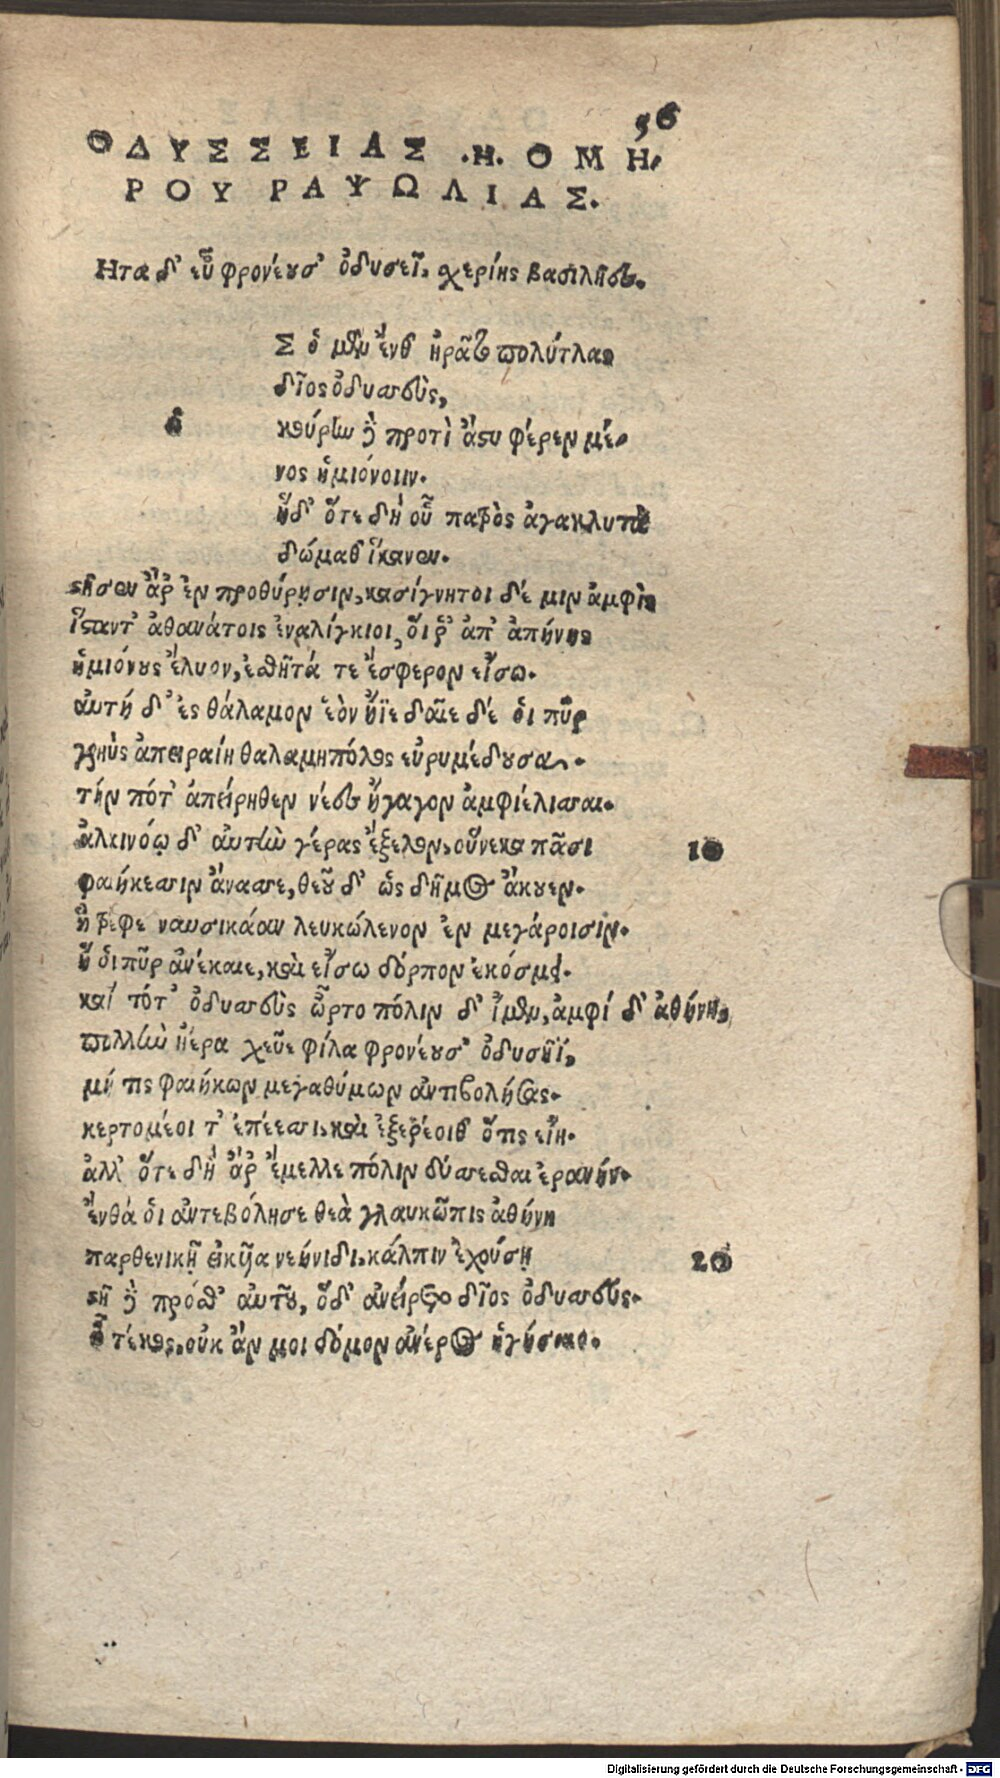 56
ΟΔΥΣΣΕΙΑΣ .Η. ΟΜΗ,
ΡΟΥ ΡΑΨΩΔΙΑΣ.
Ητα δ' εὖ φρονέουσ' ὀδυσεῖ, σχερίης βασιλῆος.
Σ ὁ μὲν ἔνθ' ἠρᾶτο πολύτλας
δῖος ὀδυσσεὺς,
ὁ
κούρην δὲ προτὶ ἄστυ φέρεν μέ-
νος ἡμιόνοιιν.
ἡ δ' ὅτε δὴ οὗ πατρὸς ἀγακλυτὰ
δώμαθ' ἵκανεν.
στῆσεν ἄρ' ἐν προθύρῃσιν, κασίγνητοι δέ μιν ἀμφὶς
ἵσταντ' ἀθανάτοις ἐναλίγκιοι, οἵ ῥ' ἀπ' ἀπήνης
ἡμιόνους ἔλυον, ἐσθῆτά τε ἔσφερον εἴσω.
αὐτὴ δ' ἐς θάλαμον ἑὸν ἤϊε δαῖε δέ οἱ πῦρ
γρηὺς ἀπειραίη θαλαμηπόλος εὐρυμέδουσα.
τήν ποτ' ἀπείρηθεν νέες ἤγαγον ἀμφιέλισσαι.
ἀλκινόῳ δ' αὐτὴν γέρας ἔξελον, οὕνεκα πᾶσι
10
φαιήκεσσιν ἄνασσε, θεοῦ δ' ὣς δῆμος ἄκουεν.
ἣ τρέφε ναυσικάαν λευκώλενον ἐν μεγάροισιν.
ἥ οἱ πῦρ ἀνέκαιε, καὶ εἴσω δόρπον ἐκόσμει.
καὶ τότ' ὀδυσσεὺς ὦρτο πόλιν δ' ἴμεν, ἀμφὶ δ' ἀθήνη,
πολλὴν ἠέρα χεῦε φίλα φρονέουσ' ὀδυσῆϊ,
μή τις φαιήκων μεγαθύμων ἀντιβολήσας.
κερτομέοι τ' ἐπέεσσι, καὶ ἐξερέοιθ' ὅτις εἴη.
ἀλλ' ὅτε δὴ ἄρ' ἔμελλε πόλιν δύσεσθαι ἐρανήν.
ἔνθά οἱ ἀντεβόλησε θεὰ γλαυκῶπις ἀθήνη
παρθενικῇ εἰκυῖα νεήνιδι, κάλπιν ἐχούσῃ
20
στῆ δὲ πρόσθ' αὐτοῦ, ὁ δ' ἀνείρετο δῖος ὀδυσσεύς.
ὦ τέκος, οὐκ ἄν μοι δόμον ἀνέρος ἡγήσαιο.
Digitalisierung gefördert durch die Deutsche Forschungsgemeinschaft - DFG